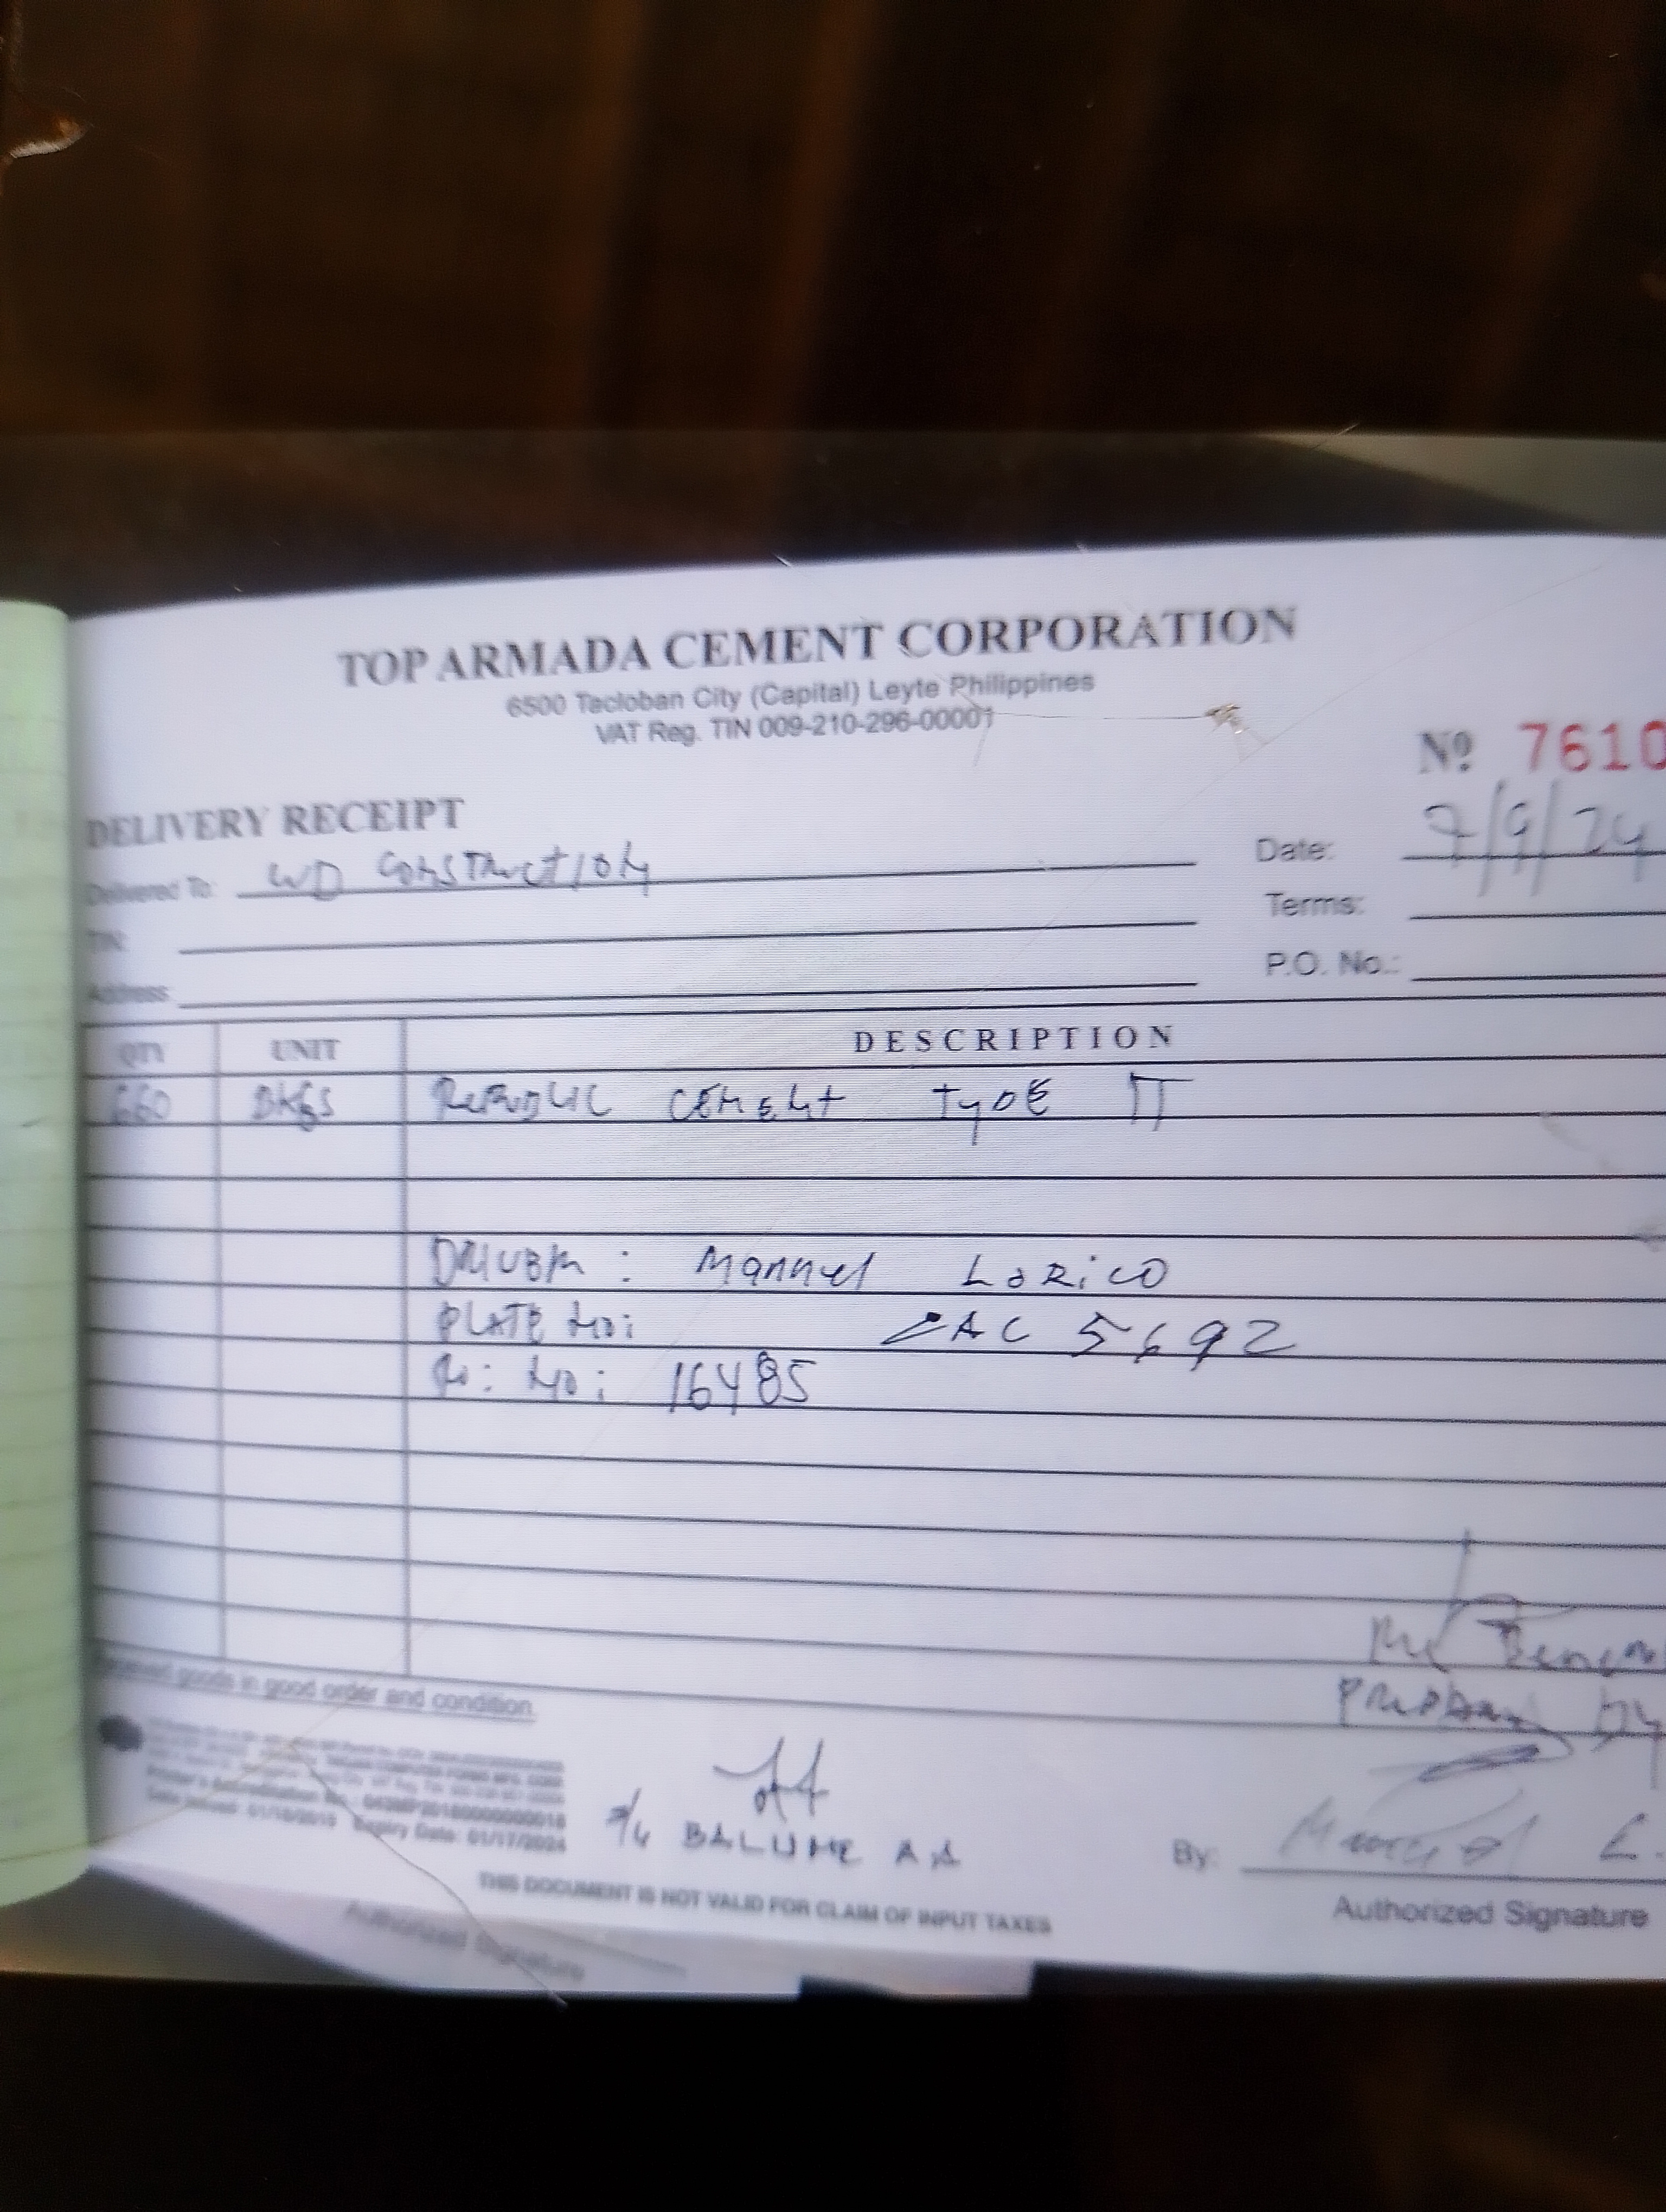 TOP ARMADA CEMENT CORPORATION
6500 Tacloban City (Capital) Leyte Philippines
VAT Reg. TIN 009-210-296-00001
Nº 7610
DELIVERY RECEIPT
Date: 7/9/24
Delivered To: WD CONSTRUCTION
Terms:
TIN:
P.O. No.:
Address:
QTY UNIT DESCRIPTION
660 BAGS REPUBLIC CEMENT TYPE II
DRIVER: Manuel LoRiCO
PLATE NO: CAC 5692
NO: 16485
Received goods in good order and condition.
PREPARED by
Date Issued: 01/18/2019 Expiry Date: 01/17/2024
BALUME
By:
THIS DOCUMENT IS NOT VALID FOR CLAIM OF INPUT TAXES
Authorized Signature
Authorized Signature